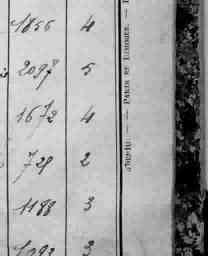 1856 4
2097 5
1672 4
729 2
1188 3
3
PARIS ET LIMOGES. —